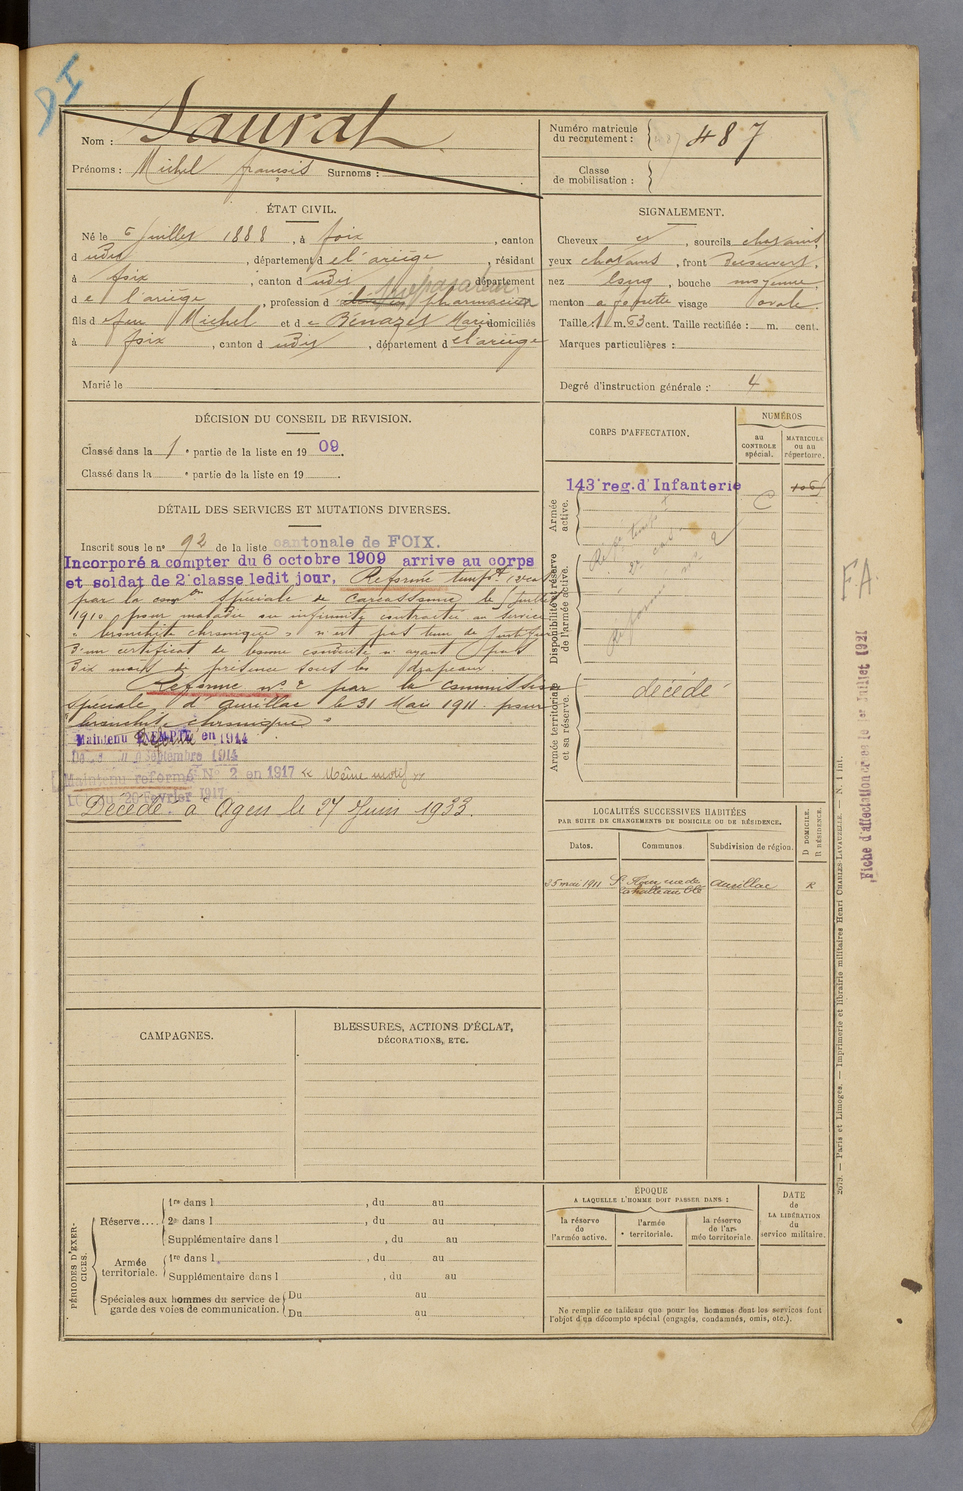 DI
Nom : Saurat
Prénoms : Michel françois Surnoms :
Numéro matricule du recrutement : 487
Classe de mobilisation :
ÉTAT CIVIL.
Né le 5 Juillet 1888, à foix, canton
d udit, département de l'ariège, résidant
à foix, canton d udit, département
de l'ariège, profession d préparateur pharmacien
fils de feu Michel et de Bénazet Marie domiciliés
à foix, canton d udit, département de l'ariège
Marié le
SIGNALEMENT.
Cheveux et, sourcils chatains,
yeux chatains, front découvert,
nez long, bouche moyenne,
menton à fossette visage ovale.
Taille 1 m. 63 cent. Taille rectifiée : m. cent.
Marques particulières :
Degré d'instruction générale : 4
DÉCISION DU CONSEIL DE REVISION.
Classé dans la 1e partie de la liste en 1909.
Classé dans la e partie de la liste en 19 .
CORPS D'AFFECTATION.
NUMÉROS
au CONTROLE spécial.
MATRICULE ou au répertoire.
Armée active.
143e reg. d'Infanterie
Disponibilité et réserve de l'armée active.
Réformé n° 2
Armée territoriale et sa réserve.
décédé
DÉTAIL DES SERVICES ET MUTATIONS DIVERSES.
Inscrit sous le n° 92 de la liste cantonale de FOIX.
Incorporé à compter du 6 octobre 1909 arrive au corps
et soldat de 2e classe ledit jour, Réformé tempt
par la con spéciale de Carcassonne le juillet
1910 pour maladie ou infirmité contractée au service
" bronchite chronique " n'est pas tenu de justifier
d'un certificat de bonne conduite n'ayant pas
dix mois de présence sous les drapeaux.
Réformé n° 2 par la commission
spéciale d'aurillac le 31 Mai 1911 pour
"bronchite chronique"
Maintenu Réformé en 1914
Septembre 1914
Maintenu réformé N° 2 en 1917 " Même motif "
20 Février 1917
Décédé à Agen le 27 Juin 1933.
LOCALITÉS SUCCESSIVES HABITÉES
PAR SUITE DE CHANGEMENTS DE DOMICILE OU DE RÉSIDENCE.
D DOMICILE.
R RÉSIDENCE.
Dates.
Communes.
Subdivision de région.
25 mai 1911 St Flour rue de la halle au blé Aurillac R
CAMPAGNES.
BLESSURES, ACTIONS D'ÉCLAT,
DÉCORATIONS, ETC.
PÉRIODES D'EXERCICES.
Réserve....
1re dans l , du au
2e dans l , du au
Supplémentaire dans l , du au
Armée territoriale.
1re dans l , du au
Supplémentaire dans l , du au
Spéciales aux hommes du service de garde des voies de communication.
Du au
Du au
ÉPOQUE
A LAQUELLE L'HOMME DOIT PASSER DANS :
la réserve de l'armée active.
l'armée territoriale.
la réserve de l'armée territoriale.
DATE de LA LIBÉRATION du service militaire.
Ne remplir ce tableau que pour les hommes dont les services font
l'objet d'un décompte spécial (engagés, condamnés, omis, etc.).
FA
Fiche d'affectation créée le 1er Juillet 1921
2679. — Paris et Limoges. — Imprimerie et librairie militaires Henri CHARLES-LAVAUZELLE. — N. 1 int.